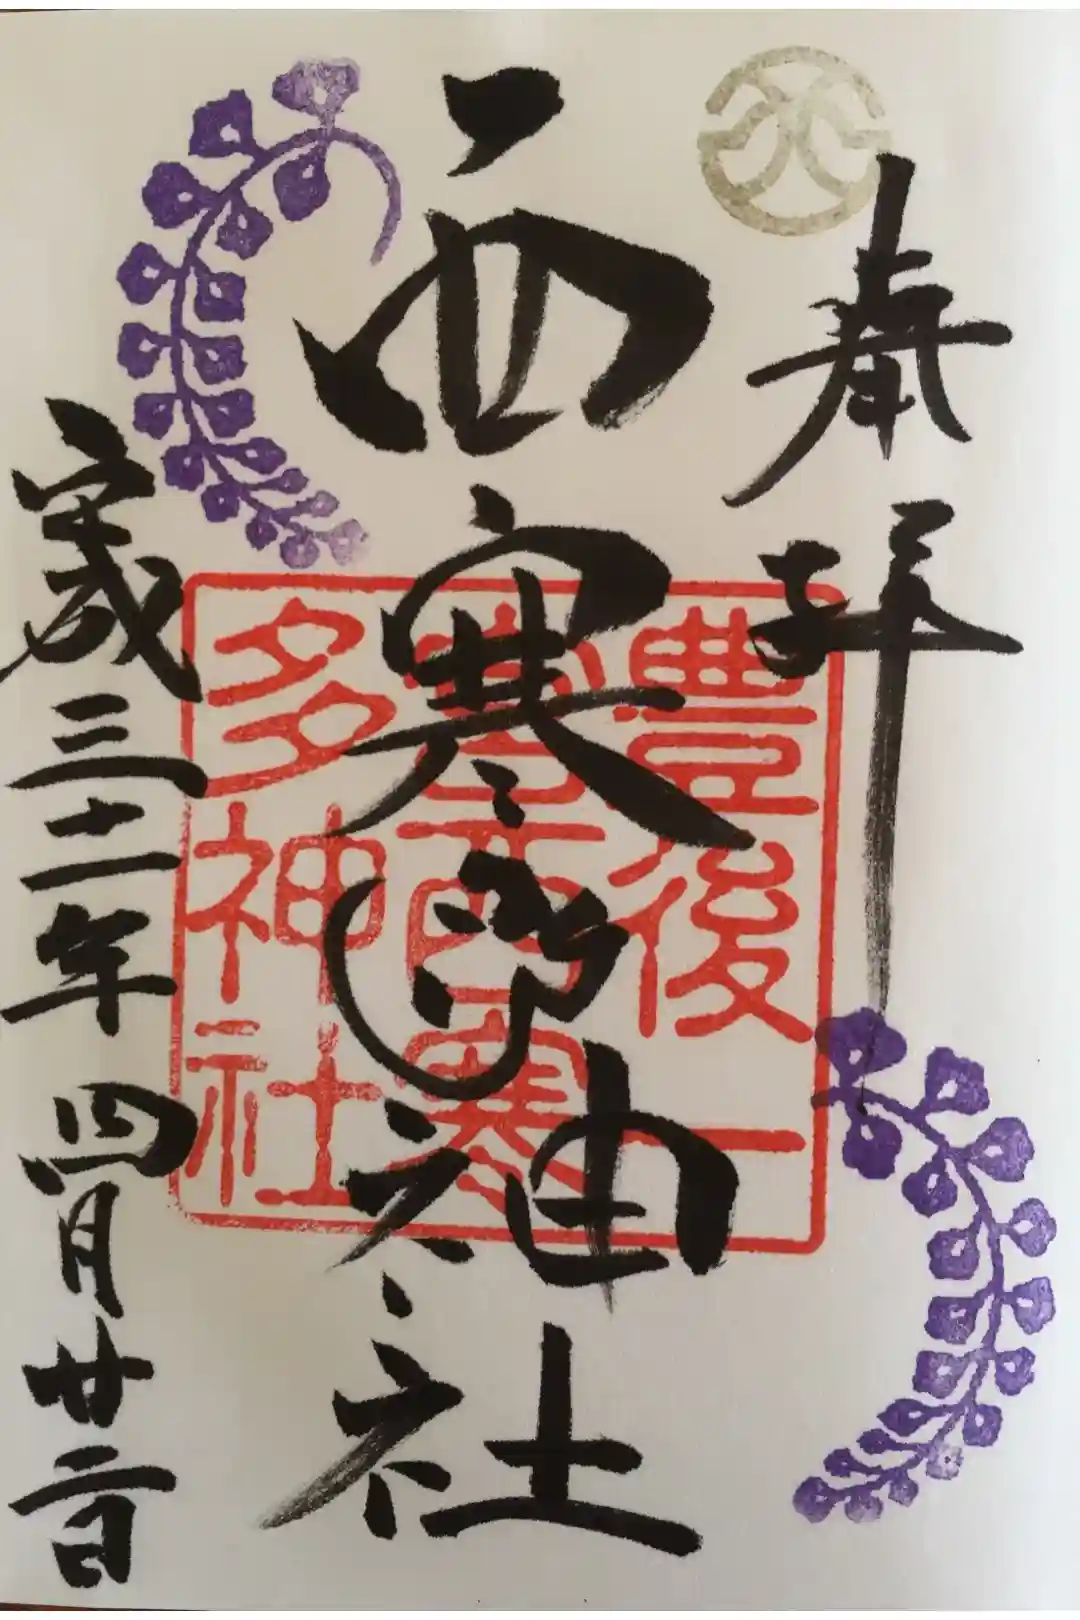 奉拝
西寒多神社
平成三十一年四月廿二日
豊後一
宮西寒
多神社